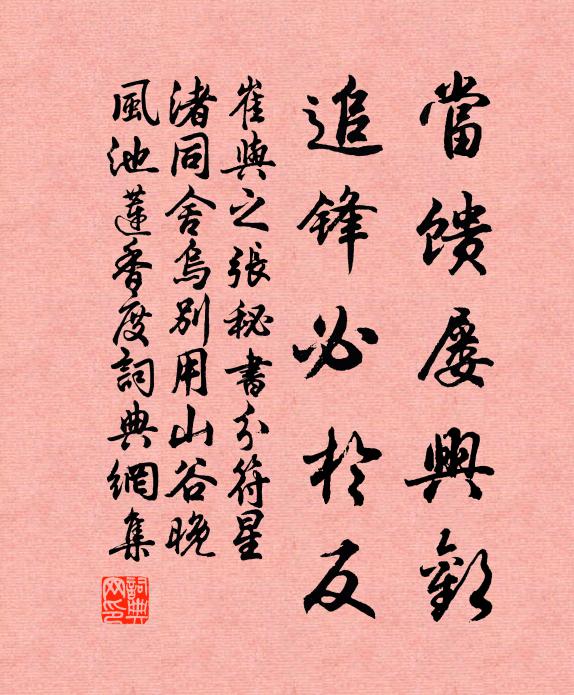 當饋屢興歎
追鋒必於反
崔與之張秘書分符星
渚同舍烏別用山谷晚
風池蓮香度詞典網集
詞典网印